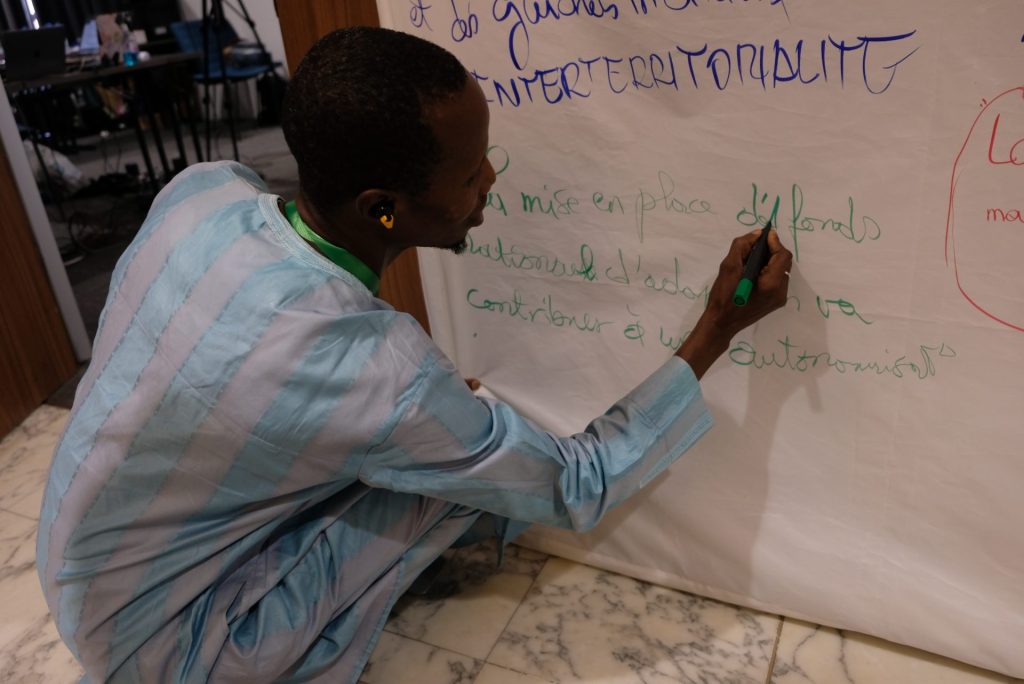 et des guichets
INTERTERRITORIALITE
mise en place de fonds
nationaux d'adap va
contribuer à autonomisat°
La
ma